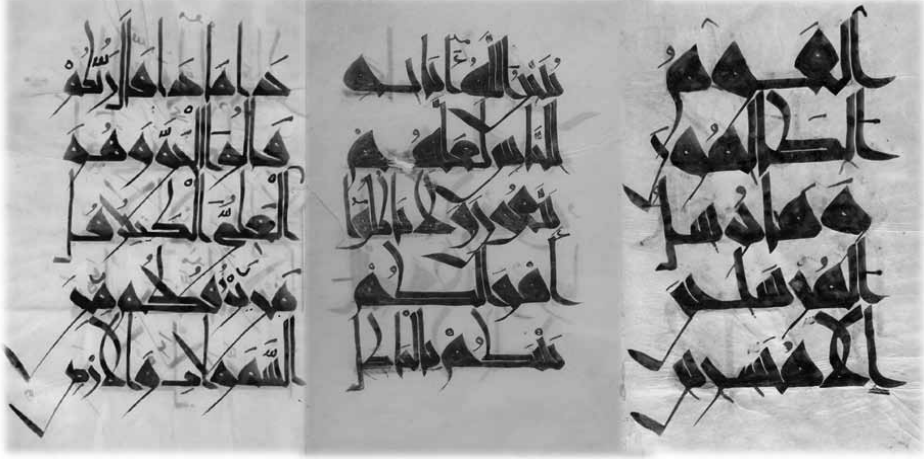 القوم
الظلمون
وما نرسل
المرسلين
إلا مبشرين
يبين الله آياته
للناس لعلهم
يتقون ولا تأكلوا
أموالكم
بينكم بالباطل
ماذا قال ربكم
قالوا الحق وهو
العلي الكبير قل
من يرزقكم من
السموات والأرض